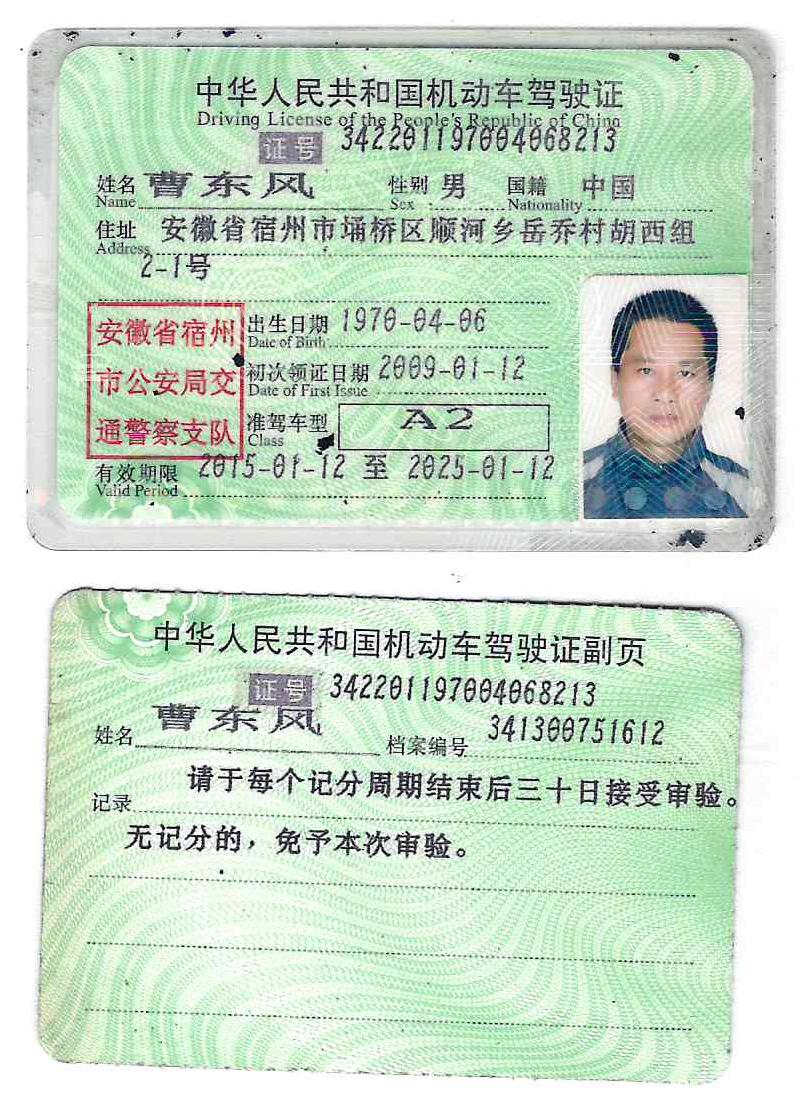 中华人民共和国机动车驾驶证
Driving License of the People's Republic of China
证号 342201197004068213
姓名 曹东风 性别 男 国籍 中国
Name Sex Nationality
住址 安徽省宿州市埇桥区顺河乡岳乔村胡西组
Address
2-1号
安徽省宿州
市公安局交
通警察支队
出生日期 1970-04-06
Date of Birth
初次领证日期 2009-01-12
Date of First Issue
准驾车型 A2
Class
有效期限 2015-01-12 至 2025-01-12
Valid Period
中华人民共和国机动车驾驶证副页
证号 342201197004068213
姓名 曹东风 档案编号 341300751612
记录 请于每个记分周期结束后三十日接受审验。
无记分的，免予本次审验。